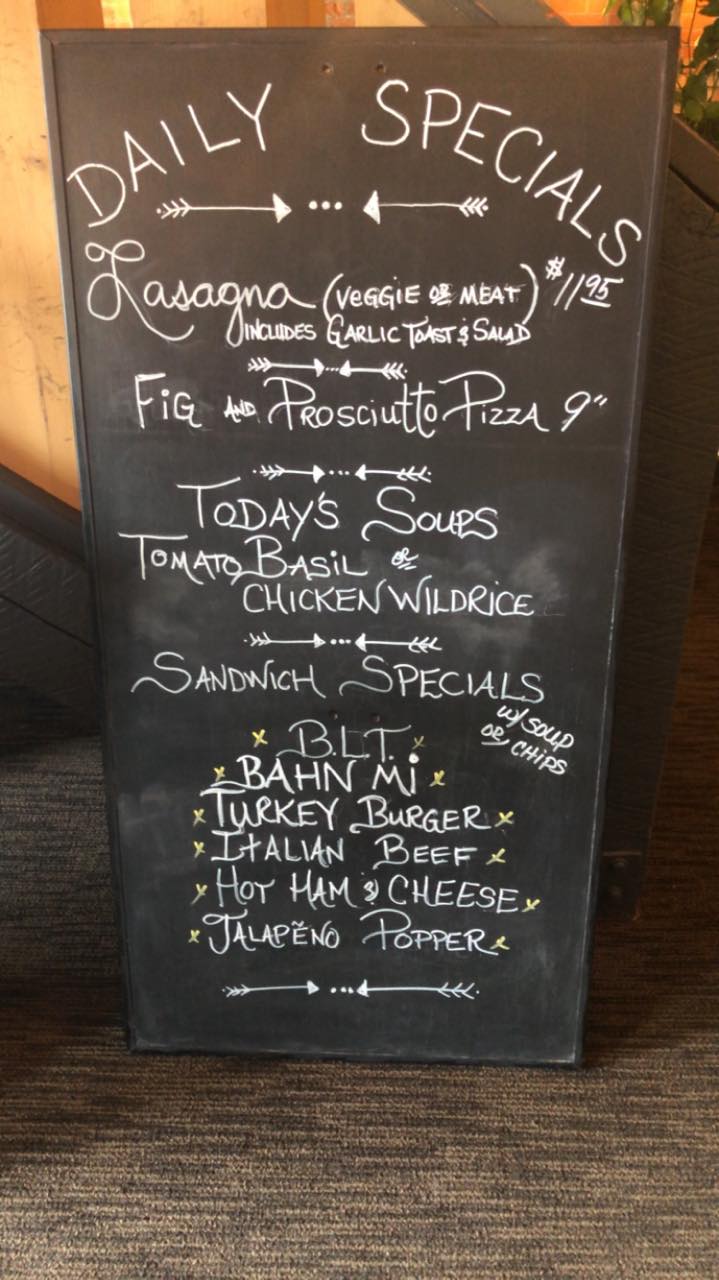 DAILY SPECIALS
Lasagna (VEGGIE OR MEAT) $11.95
INCLUDES GARLIC TOAST & SALAD
FIG AND PROSCIUTTO PIZZA 9"
TODAY'S SOUPS
TOMATO BASIL OR
CHICKEN WILDRICE
SANDWICH SPECIALS
W/ SOUP
OR CHIPS
B.L.T.
BAHN Mi
TURKEY BURGER
ITALIAN BEEF
HOT HAM & CHEESE
JALAPEÑO POPPER